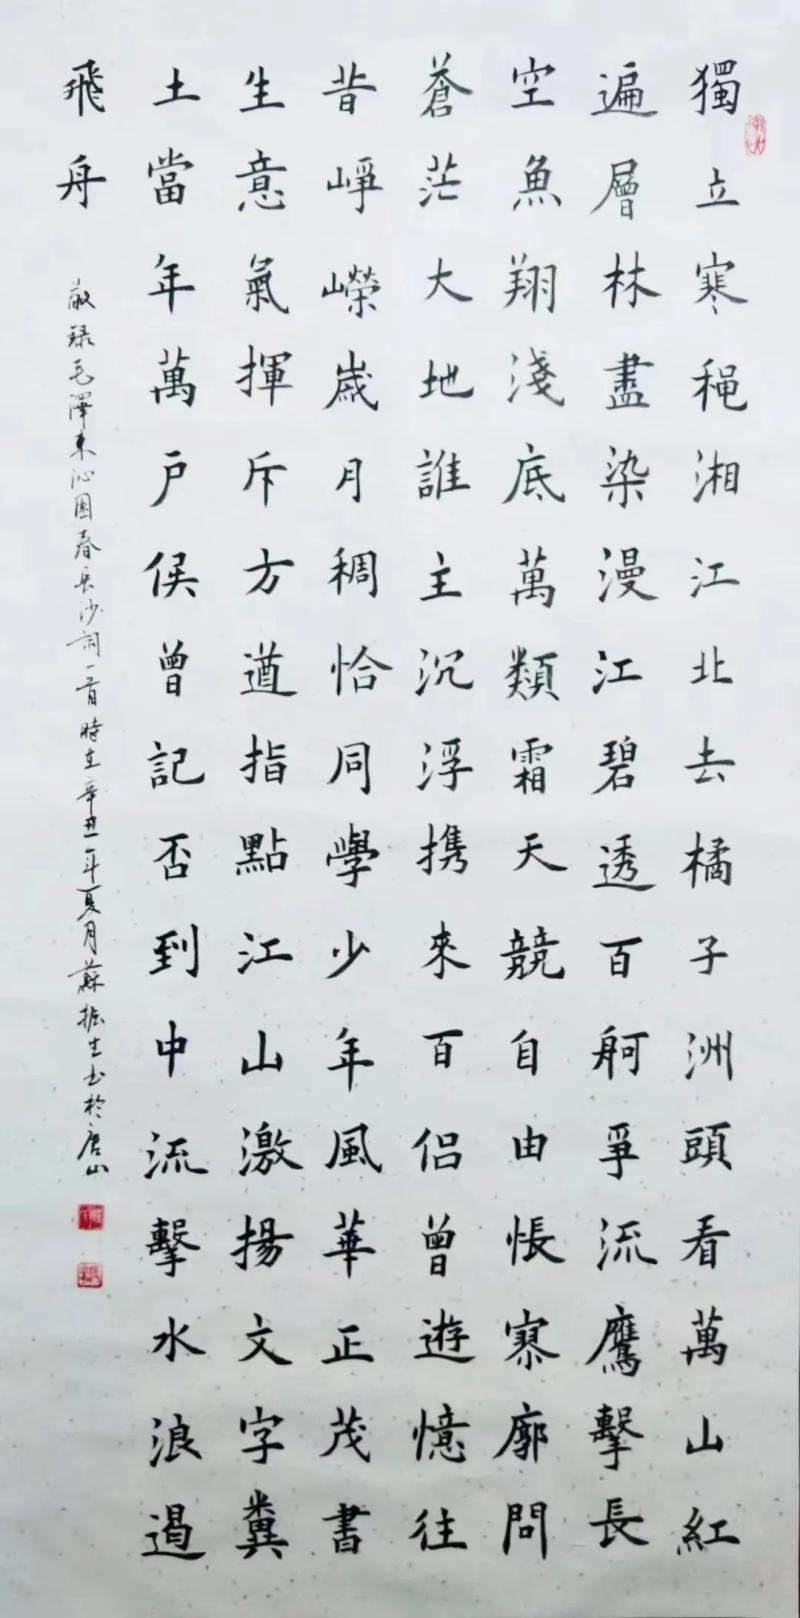 獨立寒穐湘江北去橘子洲頭看萬山紅
遍層林盡染漫江碧透百舸爭流鷹擊長
空魚翔淺底萬類霜天競自由悵寥廓問
蒼茫大地誰主沉浮携來百侣曾遊憶往
昔崢嶸歲月稠恰同學少年風華正茂書
生意氣揮斥方遒指點江山激揚文字糞
土當年萬戶侯曾記否到中流擊水浪遏
飛舟
敬録毛澤東沁園春長沙詞一首時在辛丑年夏月蘇振生书於唐山